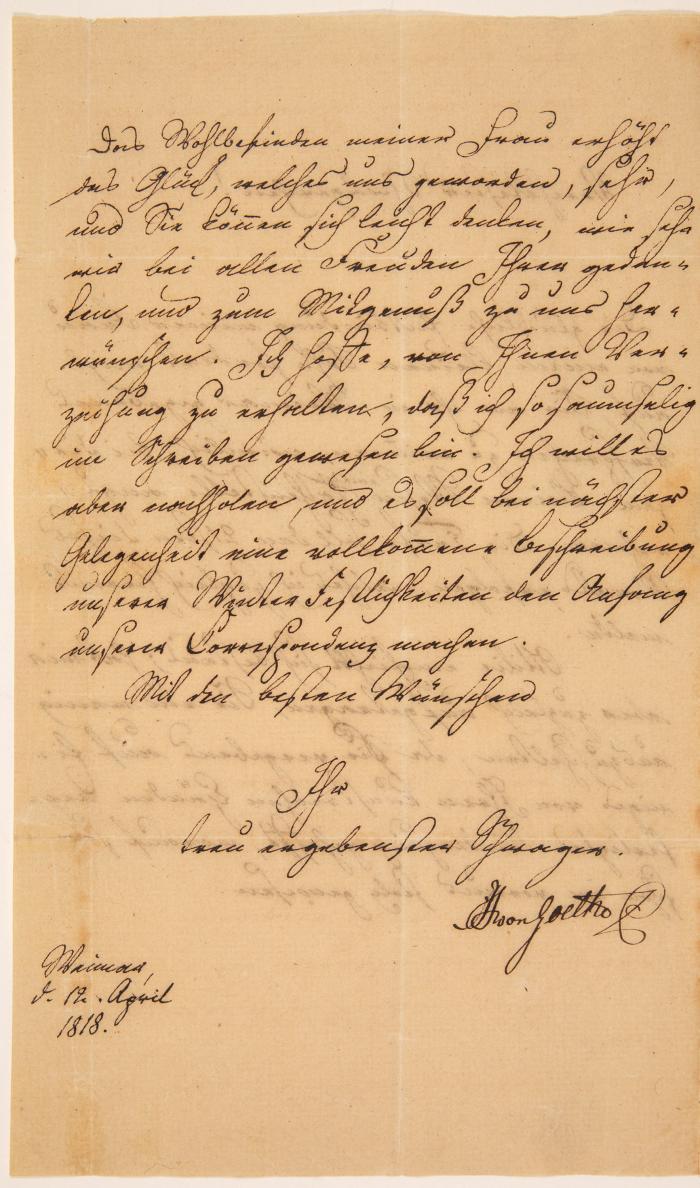 Das Wohlbefinden meiner Frau erhöht
das Glück, welches uns geworden, sehr,
und Sie kön̅en sich leicht denken, wie sehr
wir bei allen Freuden Ihrer geden-
ken, und zum Mitgenuß zu uns her-
wünschen. Ich hoffe, von Ihnen Ver-
zeihung zu erhalten, daß ich so saumselig
im Schreiben gewesen bin. Ich will es
aber nachholen und es soll bei nächster
Gelegenheit eine vollkom̅ene Beschreibung
unserer Winter Festlichkeiten den Anfang
unserer Correspondenz machen.
Mit den besten Wünschen
Ihr
treu ergebenster Schwager.
AvonGoethe
Weimar,
d. 12. April
1818.